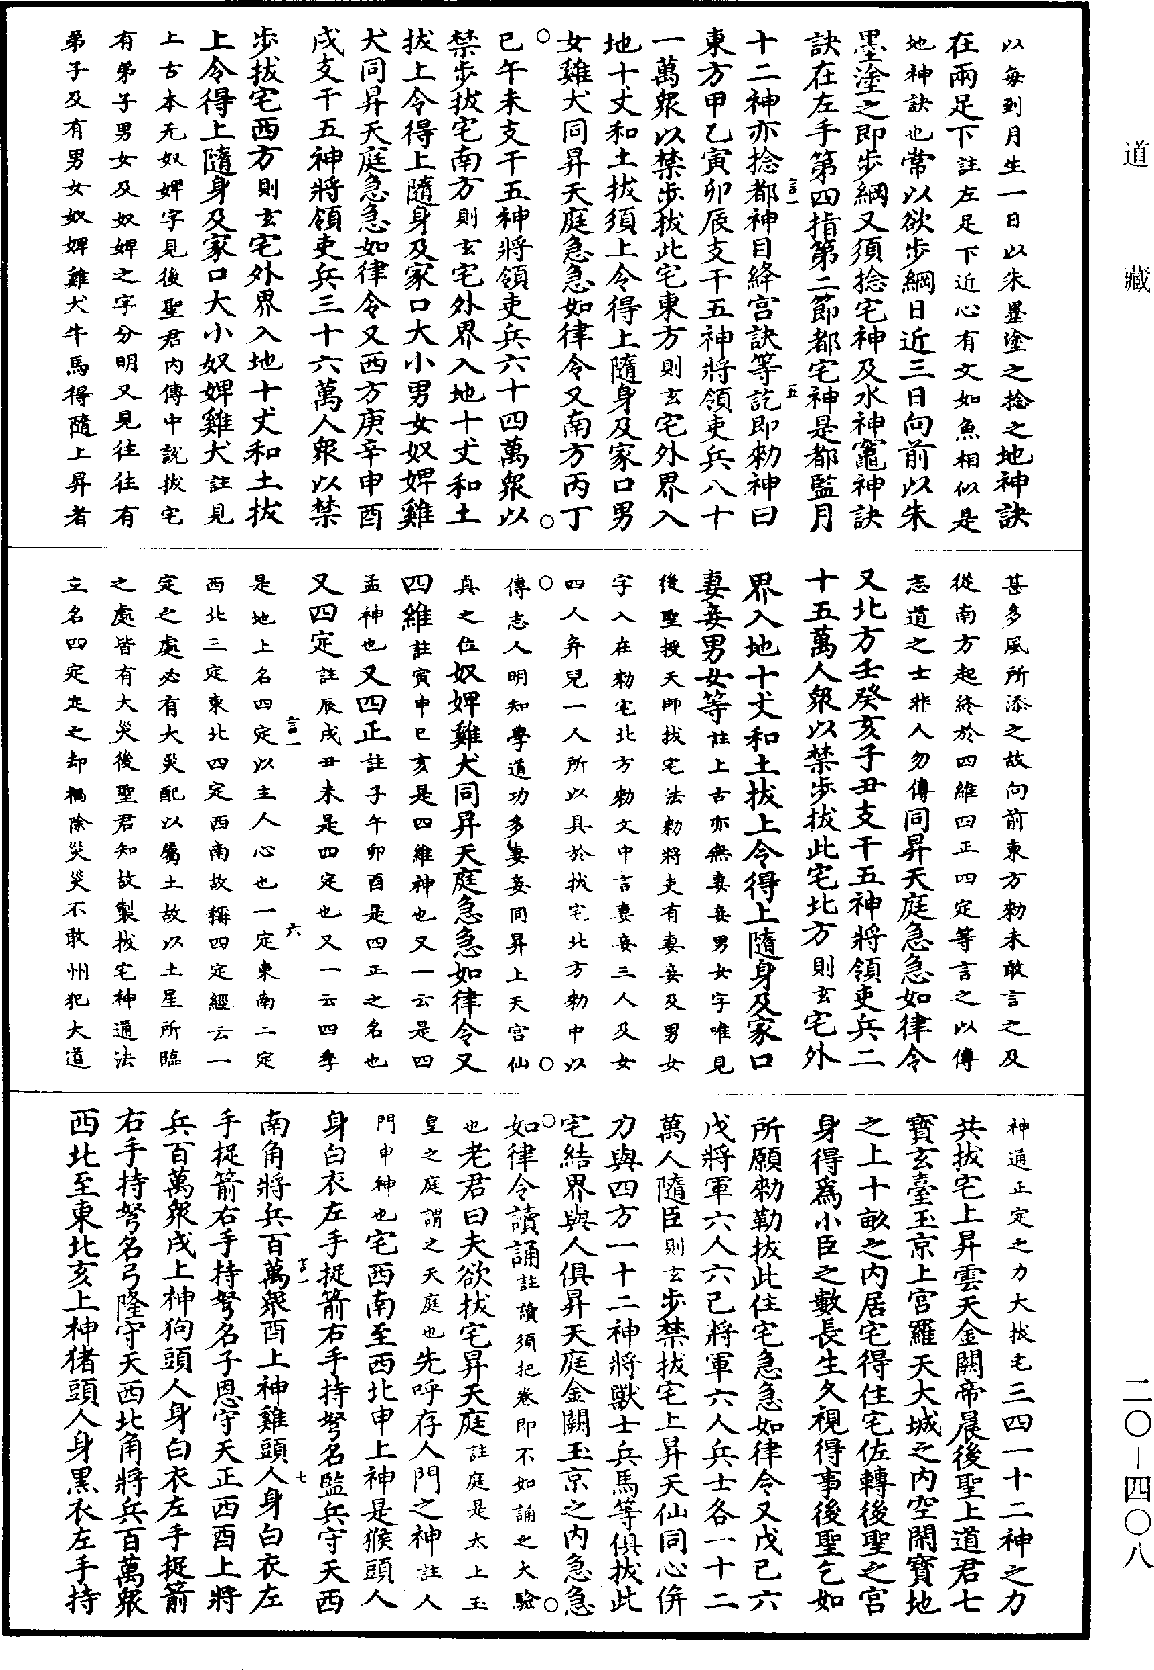 以每到月生一日以朱墨塗之捻之地神訣
在兩足下註左足下近心有文如魚相似是
地神訣也常以欲步綱日近三日向前以朱
墨塗之即步綱又須捻宅神及水神竈神訣
訣在左手第四指第二節都宅神是都監月
十二神亦捻都神目絳宮訣等訖即勑神曰
東方甲乙寅卯辰支干五神將領吏兵八十
一萬衆以禁步拔此宅東方則玄宅外界入
地十丈和土拔須上令得上隨身及家口男
女雞犬同昇天庭急急如律令又南方丙丁
巳午未支干五神將領吏兵六十四萬衆以
禁步拔宅南方則玄宅外界入地十丈和土
拔上令得上隨身及家口大小男女奴婢雞
犬同昇天庭急急如律令又西方庚辛申酉
戌支干五神將領吏兵三十六萬人衆以禁
步拔宅西方則玄宅外界入地十丈和土拔
上令得上隨身及家口大小奴婢雞犬註見
上古本无奴婢字見後聖君內傳中説拔宅
有弟子男女及奴婢之字分明又見往往有
弟子及有男女奴婢雞犬牛馬得隨上昇者
甚多風所添之故向前東方勑未敢言之及
從南方起終於四維四正四定等言之以傳
志道之士非人勿傳同昇天庭急急如律令
又北方壬癸亥子丑支干五神將領吏兵二
十五萬人衆以禁步拔此宅北方則玄宅外
界入地十丈和土拔上令得上隨身及家口
妻妾男女等註上古亦無妻妾男女字唯見
後聖授天師拔宅法勑將吏有妻妾及男女
字入在勑宅北方勑文中言妻妾三人及女
四人弁兒一人所以具於拔宅北方勑中以
傳志人明知學道功多妻妾同昇上天宮仙
真之位奴婢雞犬同昇天庭急急如律令又
四維註寅申巳亥是四維神也又一云是四
孟神也又四正註子午卯酉是四正之名也
又四定註辰戌丑未是四定也又一云四季
是地上名四定以主人心也一定東南二定
西北三定東北四定西南故稱四定經云一
定之處必有大災配以屬土故以土星所臨
之處皆有大災後聖君知故製拔宅神通法
立名四定定之却禍除災災不敢州犯大道
神通正定之力大拔宅三四一十二神之力
共拔宅上昇雲天金闕帝晨後聖上道君七
寶玄臺玉京上宮羅天大城之內空閑寶地
之上十畝之內居宅得住宅佐轉後聖之宮
身得爲小臣之數長生久視得事後聖乞如
所願勑勒拔此住宅急急如律令又戊己六
戊將軍六人六己將軍六人兵士各一十二
萬人隨臣則玄步禁拔宅上昇天仙同心併
力與四方一十二神將獸士兵馬等俱拔此
宅結界與人俱昇天庭金闕玉京之內急急
如律令讀誦註讀須把卷即不如誦之大驗
也老君曰夫欲拔宅昇天庭註庭是太上玉
皇之庭謂之天庭也先呼存人門之神註人
門申神也宅西南至西北申上神是猴頭人
身白衣左手捉箭右手持弩名監兵守天西
南角將兵百萬衆酉上神雞頭人身白衣左
手捉箭右手持弩名子恩守天正西酉上將
兵百萬衆戌上神狗頭人身白衣左手捉箭
右手持弩名弓隆守天西北角將兵百萬衆
西北至東北亥上神猪頭人身黑衣左手持
言一
五
言一
六
言一
七
道藏
二〇—四〇八